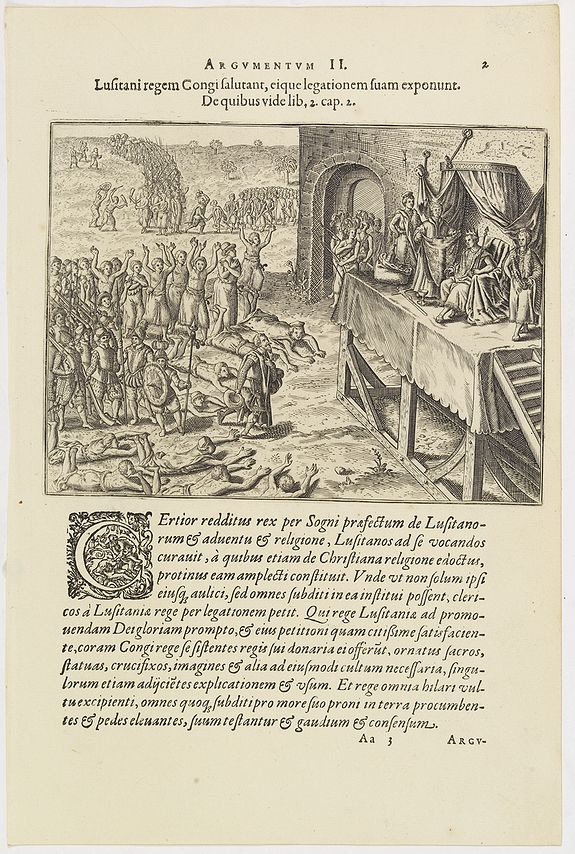 ARGVMENTVM II. 2
Luſitani regem Congi ſalutant, eique legationem ſuam exponunt.
De quibus vide lib, 2. cap. 2.
CErtior redditus rex per Sogni præfectum de Luſitano-
rum & aduentu & religione, Luſitanos ad ſe vocandos
curauit, à quibus etiam de Chriſtiana religione edoctus,
protinus eam amplecti conſtituit. Vnde vt non ſolum ipſi
eiusq́; aulici, ſed omnes ſubditi in ea inſtitui poſſent, cleri-
cos à Luſitaniæ rege per legationem petit. Qui rege Luſitaniæ ad promo-
uendam Dei gloriam prompto, & eius petitioni quam citiſsime ſatisfacien-
te, coram Congi rege ſe ſiſtentes regis ſui donaria ei offerũt, ornatus ſacros,
ſtatuas, crucifixos, imagines & alia ad eiuſmodi cultum neceſſaria, ſingu-
lorum etiam adijciẽtes explicationem & vſum. Et rege omnia hilari vul-
tu excipienti, omnes quoq; ſubditi pro more ſuo proni in terra procumben-
tes & pedes eleuantes, ſuum teſtantur & gaudium & conſenſum.
Aa 3 ARGV-